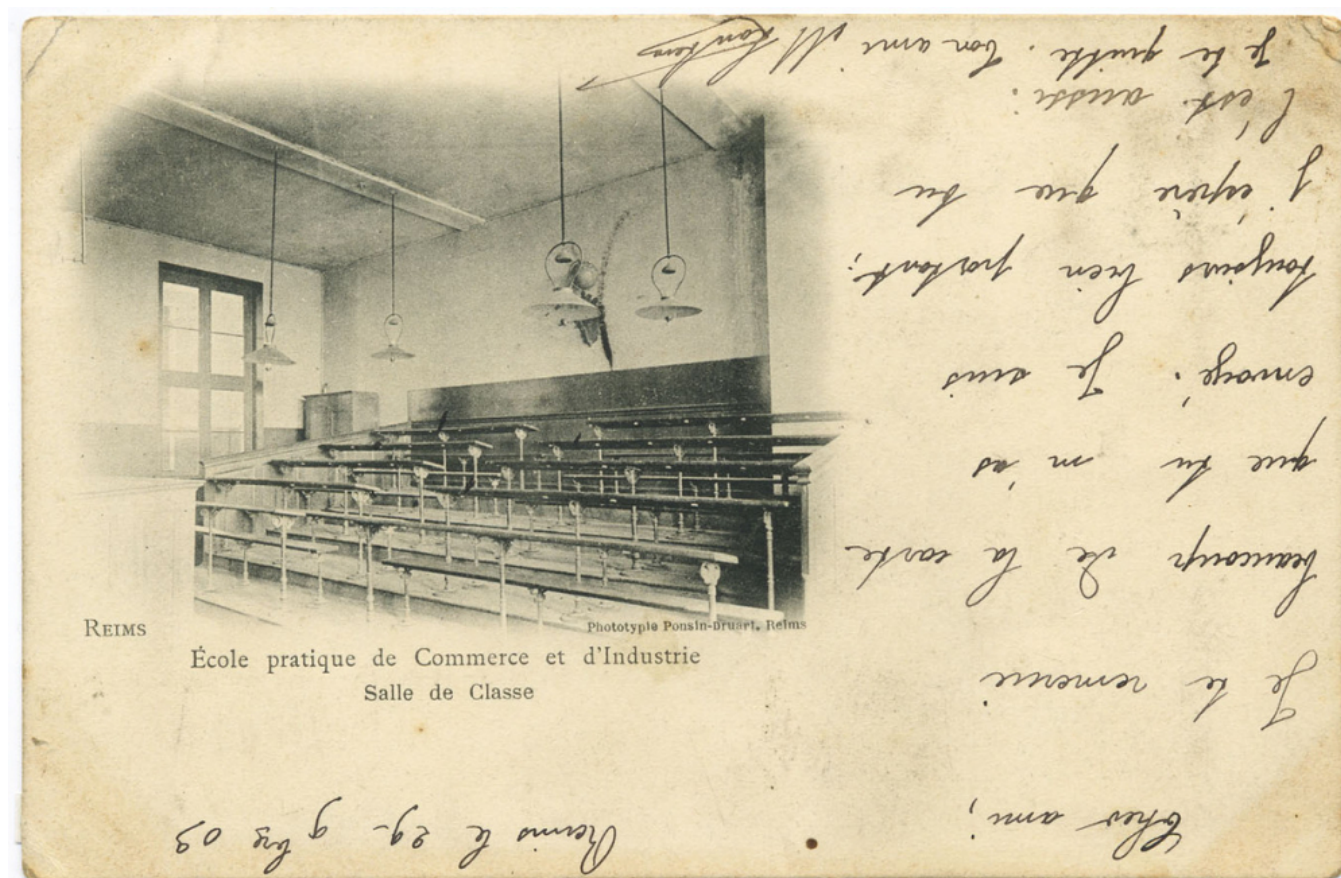 REIMS
Phototypie Ponsin-Druart, Reims
École pratique de Commerce et d'Industrie
Salle de Classe
Reims le 29- 9bre 03
Cher ami;
Je te remercie
beaucoup de la carte
que tu m'as
envoyé. Je suis
toujours bien portant;
j'espère que tu
l'est aussi.
Je te quitte. ton ami M